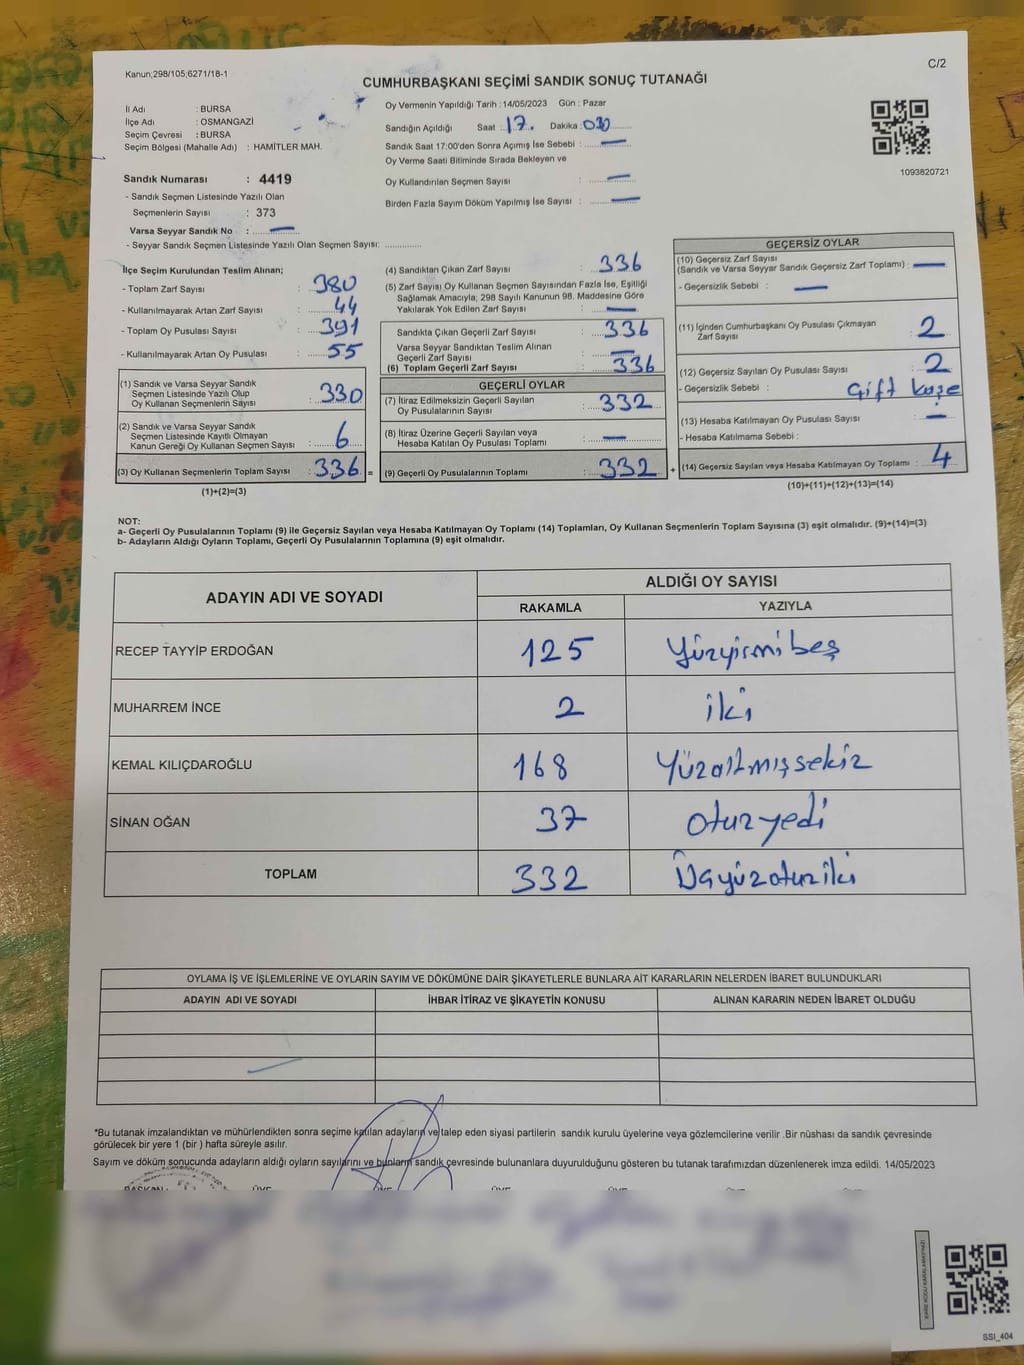 Kanun;298/105;6271/18-1
C/2
CUMHURBAŞKANI SEÇİMİ SANDIK SONUÇ TUTANAĞI
İl Adı : BURSA
İlçe Adı : OSMANGAZİ
Seçim Çevresi : BURSA
Seçim Bölgesi (Mahalle Adı) : HAMİTLER MAH.
Oy Vermenin Yapıldığı Tarih : 14/05/2023 Gün : Pazar
Sandığın Açıldığı Saat : 17. Dakika : 030
Sandık Saat 17:00'den Sonra Açımış İse Sebebi : —
Oy Verme Saati Bitiminde Sırada Bekleyen ve
Oy Kullandırılan Seçmen Sayısı : —
Birden Fazla Sayım Döküm Yapılmış İse Sayısı : —
1093820721
Sandık Numarası : 4419
- Sandık Seçmen Listesinde Yazılı Olan
Seçmenlerin Sayısı : 373
Varsa Seyyar Sandık No : —
- Seyyar Sandık Seçmen Listesinde Yazılı Olan Seçmen Sayısı: ............
İlçe Seçim Kurulundan Teslim Alınan;
- Toplam Zarf Sayısı : 380
- Kullanılmayarak Artan Zarf Sayısı : 44
- Toplam Oy Pusulası Sayısı : 391
- Kullanılmayarak Artan Oy Pusulası : 55
(1) Sandık ve Varsa Seyyar Sandık
Seçmen Listesinde Yazılı Olup
Oy Kullanan Seçmenlerin Sayısı : 330
(2) Sandık ve Varsa Seyyar Sandık
Seçmen Listesinde Kayıtlı Olmayan
Kanun Gereği Oy Kullanan Seçmen Sayısı : 6
(3) Oy Kullanan Seçmenlerin Toplam Sayısı : 336 =
(1)+(2)=(3)
(4) Sandıktan Çıkan Zarf Sayısı : 336
(5) Zarf Sayısı Oy Kullanan Seçmen Sayısından Fazla İse, Eşitliği
Sağlamak Amacıyla; 298 Sayılı Kanunun 98. Maddesine Göre
Yakılarak Yok Edilen Zarf Sayısı : —
Sandıkta Çıkan Geçerli Zarf Sayısı : 336
Varsa Seyyar Sandıktan Teslim Alınan
Geçerli Zarf Sayısı : —
(6) Toplam Geçerli Zarf Sayısı : 336
GEÇERLİ OYLAR
(7) İtiraz Edilmeksizin Geçerli Sayılan
Oy Pusulalarının Sayısı : 332
(8) İtiraz Üzerine Geçerli Sayılan veya
Hesaba Katılan Oy Pusulası Toplamı : —
(9) Geçerli Oy Pusulalarının Toplamı : 332 +
GEÇERSİZ OYLAR
(10) Geçersiz Zarf Sayısı
(Sandık ve Varsa Seyyar Sandık Geçersiz Zarf Toplamı) : —
- Geçersizlik Sebebi : —
(11) İçinden Cumhurbaşkanı Oy Pusulası Çıkmayan
Zarf Sayısı : 2
(12) Geçersiz Sayılan Oy Pusulası Sayısı : 2
- Geçersizlik Sebebi : Çift kaşe
(13) Hesaba Katılmayan Oy Pusulası Sayısı : —
- Hesaba Katılmama Sebebi :
(14) Geçersiz Sayılan veya Hesaba Katılmayan Oy Toplamı : 4
(10)+(11)+(12)+(13)=(14)
NOT:
a- Geçerli Oy Pusulalarının Toplamı (9) ile Geçersiz Sayılan veya Hesaba Katılmayan Oy Toplamı (14) Toplamları, Oy Kullanan Seçmenlerin Toplam Sayısına (3) eşit olmalıdır. (9)+(14)=(3)
b- Adayların Aldığı Oyların Toplamı, Geçerli Oy Pusulalarının Toplamına (9) eşit olmalıdır.
ADAYIN ADI VE SOYADI ALDIĞI OY SAYISI
RAKAMLA YAZIYLA
RECEP TAYYİP ERDOĞAN 125 Yüzyirmibeş
MUHARREM İNCE 2 iki
KEMAL KILIÇDAROĞLU 168 Yüzaltmışsekiz
SİNAN OĞAN 37 otuzyedi
TOPLAM 332 Üçyüzotuziki
OYLAMA İŞ VE İŞLEMLERİNE VE OYLARIN SAYIM VE DÖKÜMÜNE DAİR ŞİKAYETLERLE BUNLARA AİT KARARLARIN NELERDEN İBARET BULUNDUKLARI
ADAYIN ADI VE SOYADI İHBAR İTİRAZ VE ŞİKAYETİN KONUSU ALINAN KARARIN NEDEN İBARET OLDUĞU
*Bu tutanak imzalandıktan ve mühürlendikten sonra seçime katılan adayların ve talep eden siyasi partilerin sandık kurulu üyelerine veya gözlemcilerine verilir .Bir nüshası da sandık çevresinde
görülecek bir yere 1 (bir ) hafta süreyle asılır.
Sayım ve döküm sonucunda adayların aldığı oyların sayılarını ve bunların sandık çevresinde bulunanlara duyurulduğunu gösteren bu tutanak tarafımızdan düzenlenerek imza edildi. 14/05/2023
BAŞKAN ÜYE ÜYE ÜYE ÜYE ÜYE
SSI_404